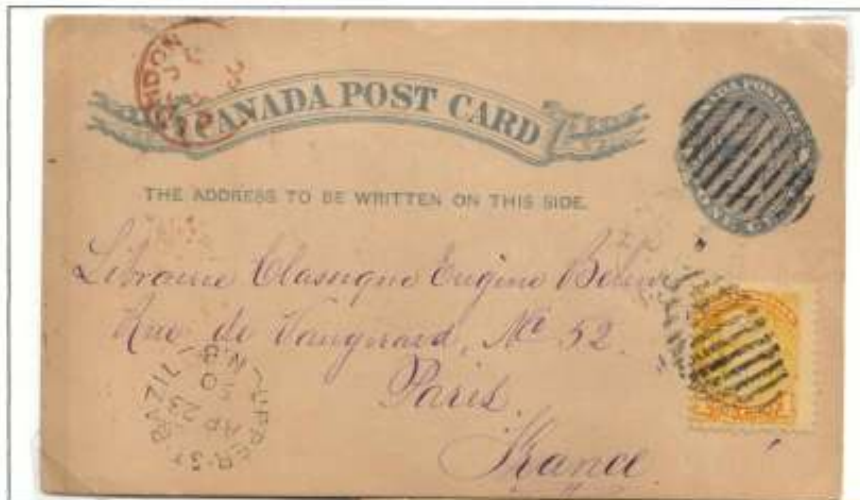 CANADA POST CARD
THE ADDRESS TO BE WRITTEN ON THIS SIDE.
Librairie Classique Eugène Belin
Rue de Vaugirard, No 52
Paris
France
UPPER
AP 23
N.B